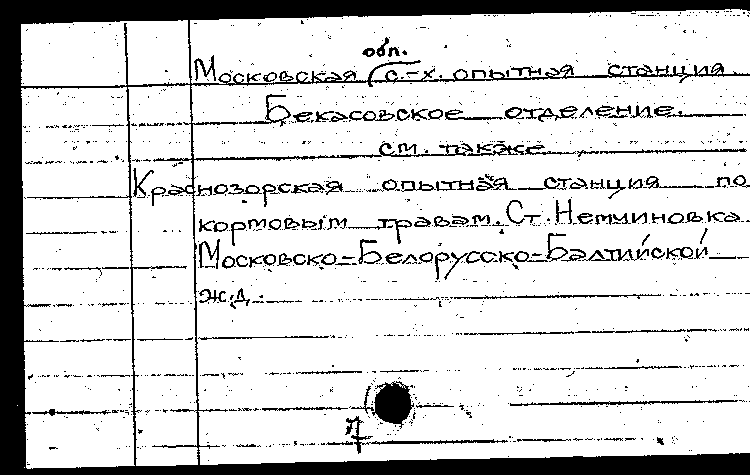 обл.
Московская с.-х. опытная станция
Бекасовское отделение.
см. также
Краснозорская опытная станция по
кормовым травам. Ст. Немчиновка
Московско-Белорусско-Балтийской
ж.д.